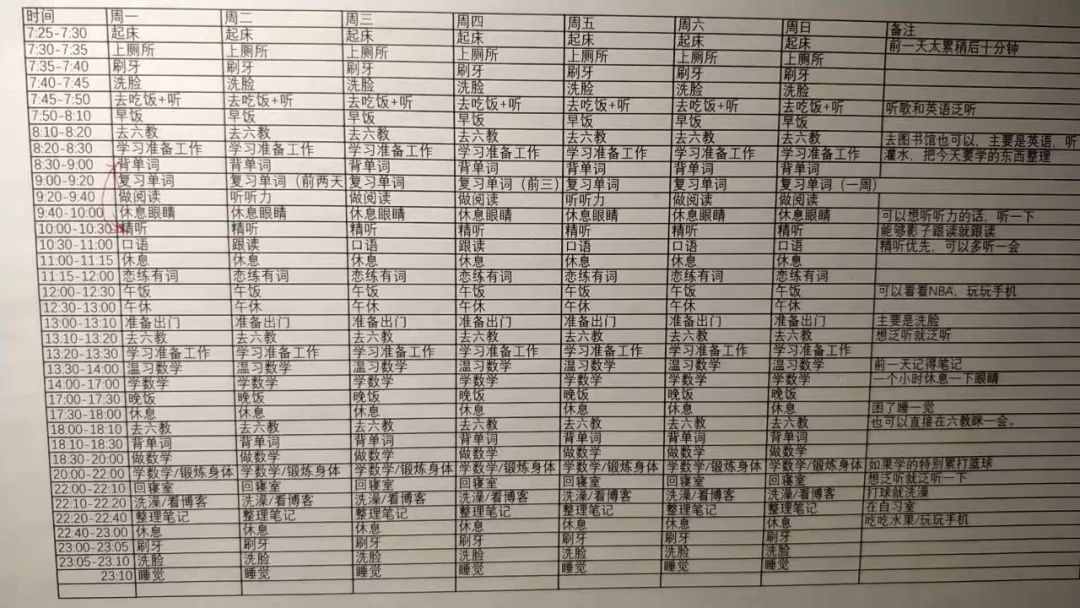 时间 周一 周二 周三 周四 周五 周六 周日 备注
7:25-7:30 起床 起床 起床 起床 起床 起床 起床 前一天太累稍后十分钟
7:30-7:35 上厕所 上厕所 上厕所 上厕所 上厕所 上厕所 上厕所
7:35-7:40 刷牙 刷牙 刷牙 刷牙 刷牙 刷牙 刷牙
7:40-7:45 洗脸 洗脸 洗脸 洗脸 洗脸 洗脸 洗脸
7:45-7:50 去吃饭+听 去吃饭+听 去吃饭+听 去吃饭+听 去吃饭+听 去吃饭+听 去吃饭+听 听歌和英语泛听
7:50-8:10 早饭 早饭 早饭 早饭 早饭 早饭 早饭
8:10-8:20 去六教 去六教 去六教 去六教 去六教 去六教 去六教 去图书馆也可以，主要是英语，听
8:20-8:30 学习准备工作 学习准备工作 学习准备工作 学习准备工作 学习准备工作 学习准备工作 学习准备工作 灌水，把今天要学的东西整理
8:30-9:00 背单词 背单词 背单词 背单词 背单词 背单词 背单词
9:00-9:20 复习单词 复习单词（前两天 复习单词 复习单词（前三） 复习单词 复习单词 复习单词（一周）
9:20-9:40 做阅读 听听力 做阅读 做阅读 听听力 做阅读 做阅读
9:40-10:00 休息眼睛 休息眼睛 休息眼睛 休息眼睛 休息眼睛 休息眼睛 休息眼睛 可以想听听力的话，听一下
10:00-10:30 精听 精听 精听 精听 精听 精听 精听 能够影子跟读就跟读
10:30-11:00 口语 跟读 口语 跟读 口语 口语 口语 精听优先，可以多听一会
11:00-11:15 休息 休息 休息 休息 休息 休息 休息
11:15-12:00 恋练有词 恋练有词 恋练有词 恋练有词 恋练有词 恋练有词 恋练有词
12:00-12:30 午饭 午饭 午饭 午饭 午饭 午饭 午饭 可以看看NBA，玩玩手机
12:30-13:00 午休 午休 午休 午休 午休 午休 午休
13:00-13:10 准备出门 准备出门 准备出门 准备出门 准备出门 准备出门 准备出门 主要是洗脸
13:10-13:20 去六教 去六教 去六教 去六教 去六教 去六教 去六教 想泛听就泛听
13:20-13:30 学习准备工作 学习准备工作 学习准备工作 学习准备工作 学习准备工作 学习准备工作 学习准备工作
13:30-14:00 温习数学 温习数学 温习数学 温习数学 温习数学 温习数学 温习数学 前一天记得笔记
14:00-17:00 学数学 学数学 学数学 学数学 学数学 学数学 学数学 一个小时休息一下眼睛
17:00-17:30 晚饭 晚饭 晚饭 晚饭 晚饭 晚饭 晚饭
17:30-18:00 休息 休息 休息 休息 休息 休息 休息 困了睡一觉
18:00-18:10 去六教 去六教 去六教 去六教 去六教 去六教 去六教 也可以直接在六教眯一会。
18:10-18:30 背单词 背单词 背单词 背单词 背单词 背单词 背单词
18:30-20:00 做数学 做数学 做数学 做数学 做数学 做数学 做数学
20:00-22:00 学数学/锻炼身体 学数学/锻炼身体 学数学/锻炼身体 学数学/锻炼身体 学数学/锻炼身体 学数学/锻炼身体 学数学/锻炼身体 如果学的特别累打篮球
22:00-22:10 回寝室 回寝室 回寝室 回寝室 回寝室 回寝室 回寝室 想泛听就泛听一下
22:10-22:20 洗澡/看博客 洗澡/看博客 洗澡/看博客 洗澡/看博客 洗澡/看博客 洗澡/看博客 洗澡/看博客 打球就洗澡
22:20-22:40 整理笔记 整理笔记 整理笔记 整理笔记 整理笔记 整理笔记 整理笔记 在自习室
22:40-23:00 休息 休息 休息 休息 休息 休息 休息 吃吃水果/玩玩手机
23:00-23:05 刷牙 刷牙 刷牙 刷牙 刷牙 刷牙 刷牙
23:05-23:10 洗脸 洗脸 洗脸 洗脸 洗脸 洗脸 洗脸
23:10 睡觉 睡觉 睡觉 睡觉 睡觉 睡觉 睡觉